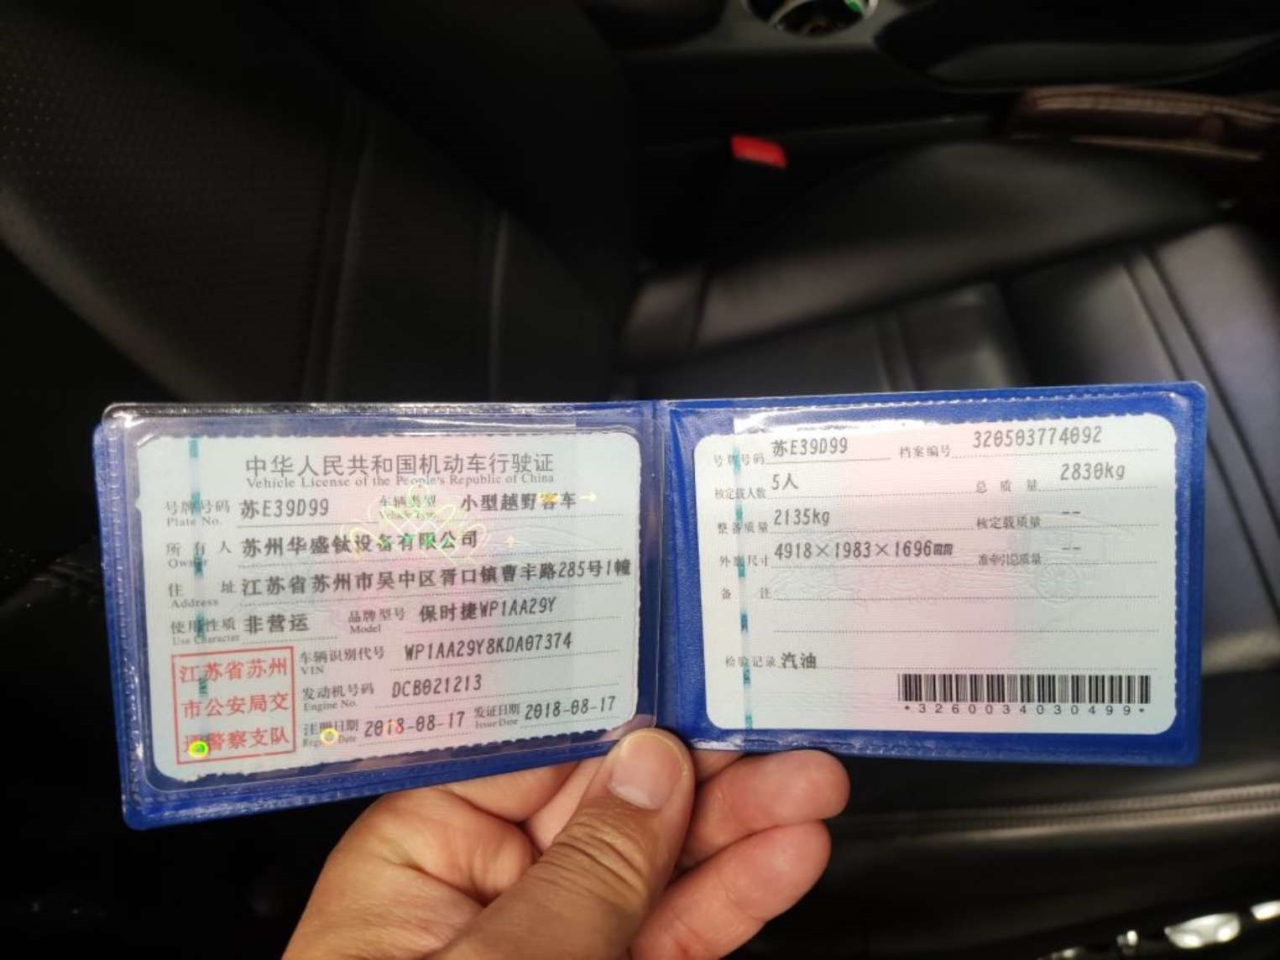 中华人民共和国机动车行驶证
Vehicle License of the People's Republic of China
号牌号码 苏E39D99 车辆类型 小型越野客车
Plate No.
所有人 苏州华盛钛设备有限公司
Owner
住址 江苏省苏州市吴中区胥口镇曹丰路285号1幢
Address
使用性质 非营运 品牌型号 保时捷WP1AA29Y
Use Character Model
车辆识别代号 WP1AA29Y8KDA07374
VIN
发动机号码 DCB021213
Engine No.
注册日期 2018-08-17 发证日期 2018-08-17
Register Date Issue Date
江苏省苏州
市公安局交
通警察支队
号牌号码 苏E39D99 档案编号 320503774092
核定载人数 5人 总质量 2830kg
整备质量 2135kg 核定载质量 --
外廓尺寸 4918×1983×1696mm 准牵引总质量 --
备注
检验记录 汽油
*3260034030499*